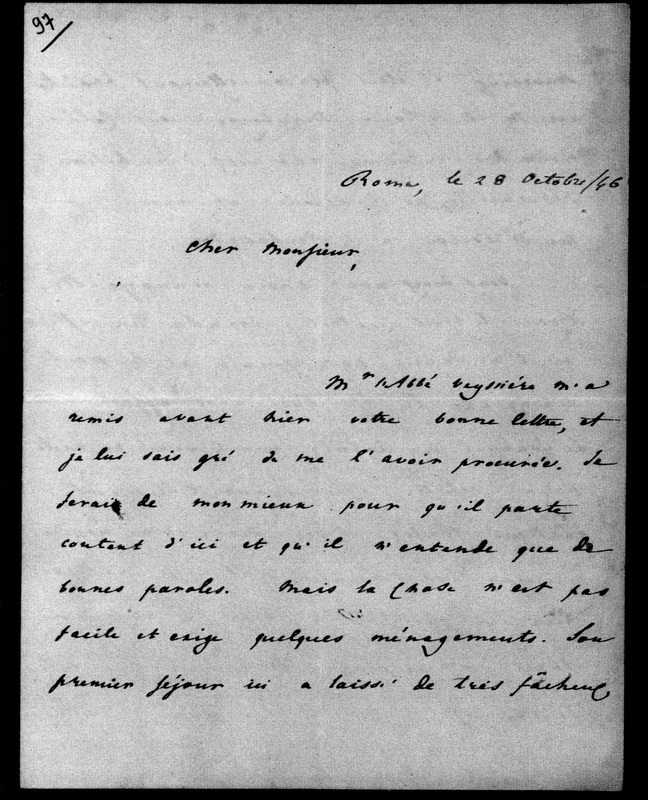 97/
Roma, le 28 Octobre/46
Cher Monsieur,
Mr l'Abbé Veyssière m'a
remis avant hier votre bonne lettre, et
je lui sais gré de me l'avoir procurée. Je
ferai de mon mieux pour qu'il parte
content d'ici et qu'il n'entende que de
bonnes paroles. Mais la chose n'est pas
facile et exige quelques ménagements. Son
premier séjour ici a laissé de très fâcheux